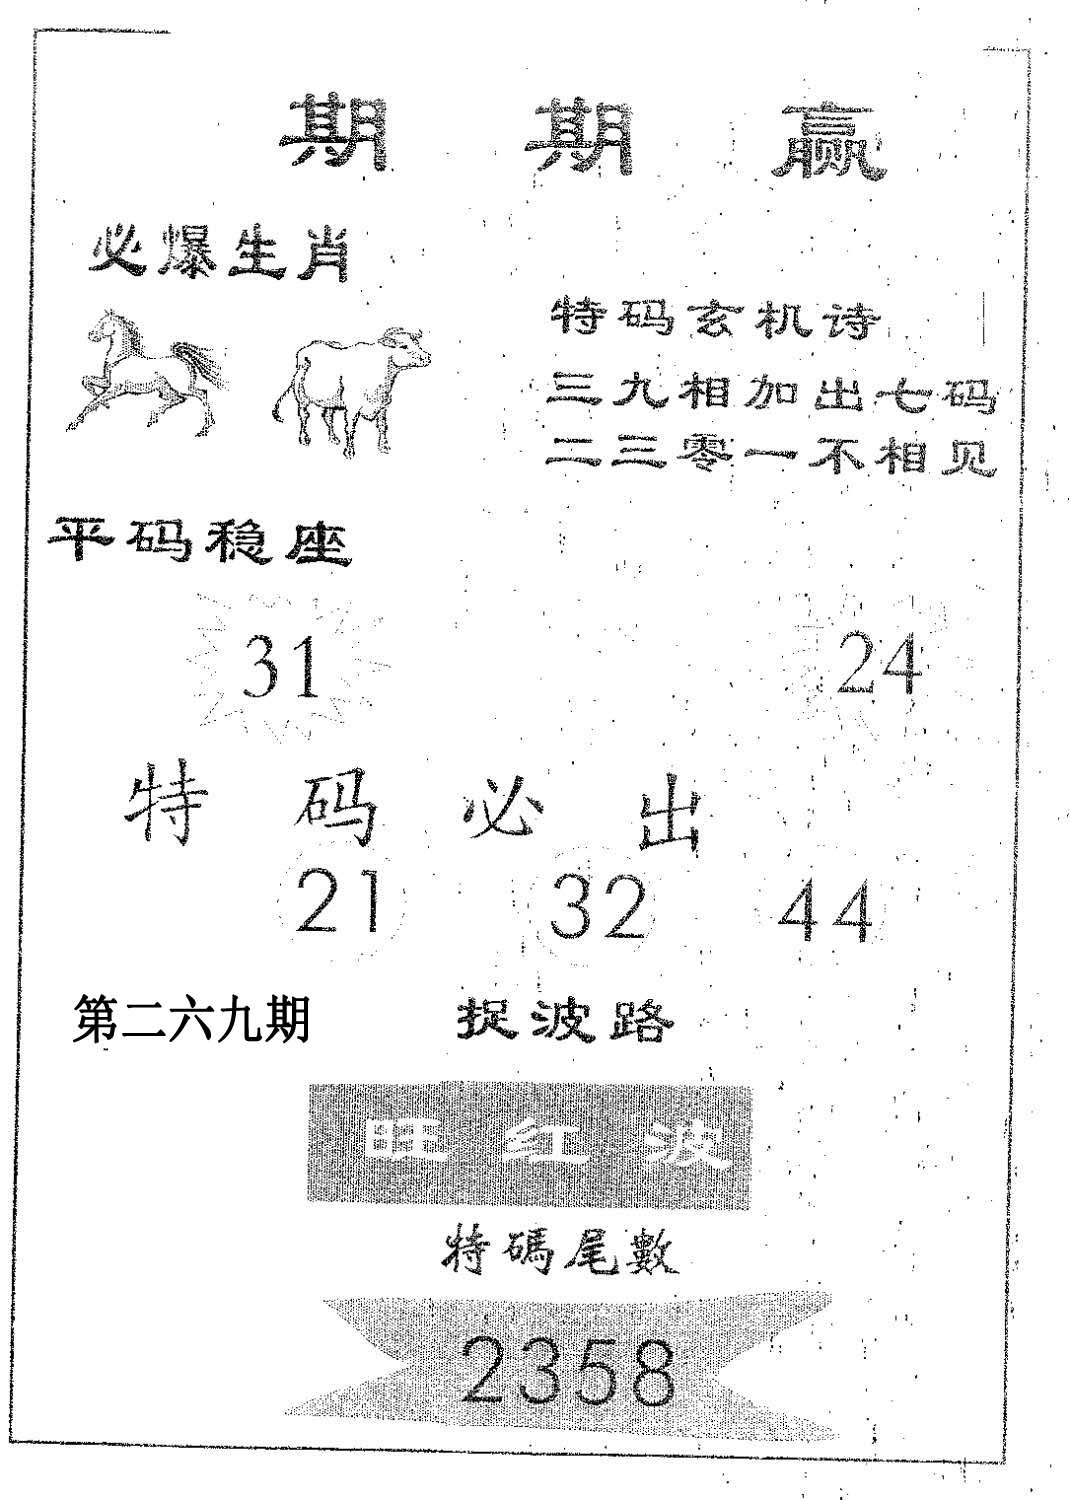 期期赢
必爆生肖
特码玄机诗
三九相加出七码
二三零一不相见
平码稳座
31
24
特码必出
21 32 44
第二六九期
捉波路
旺红波
特碼尾數
2358